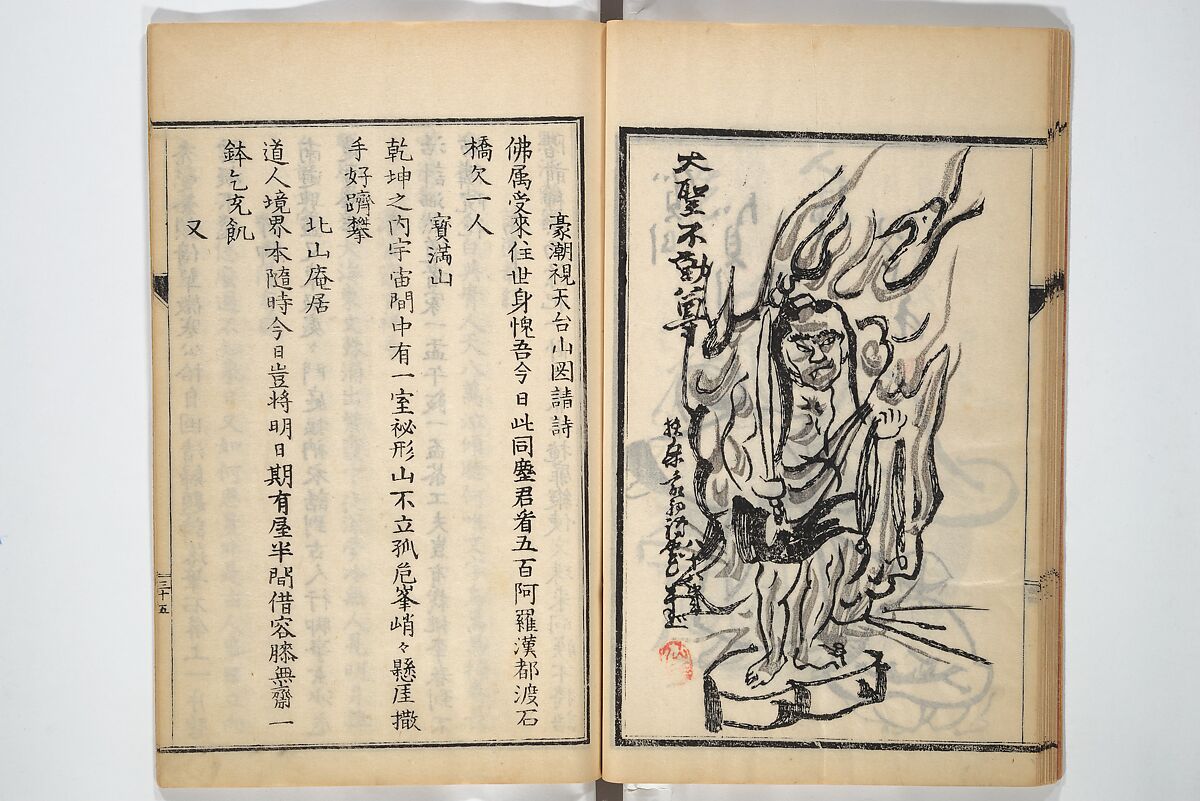 大聖不動尊
豪潮視天台山図請詩
佛属受來住世身愧吾今日此同塵君看五百阿羅漢都渡石
橋欠一人
寳満山
乾坤之内宇宙間中有一室祕形山不立孤危峯峭々懸厓撒
手好躋攀
北山庵居
道人境界本隨時今日豈将明日期有屋半間借容膝無齋一
鉢乞充飢
又
三十五